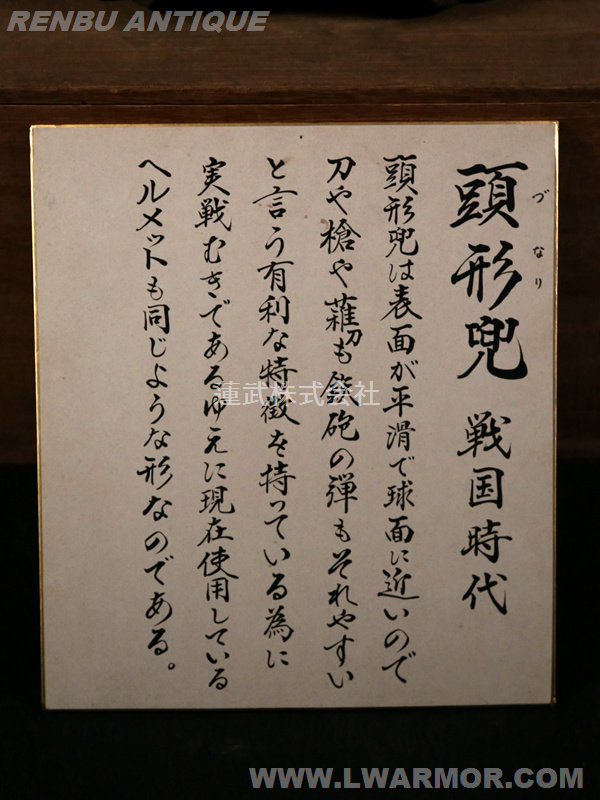 RENBU ANTIQUE
頭形兜 戦国時代
づなり
頭形兜は表面が平滑で球面に近いので
刀や槍や薙も鉄砲の弾もそれやすい
と言う有利な特徴を持っている為に
実戦むきであるゆえに現在使用している
ヘルメットも同じような形なのである。
蓮武株式会社
WWW.LWARMOR.COM